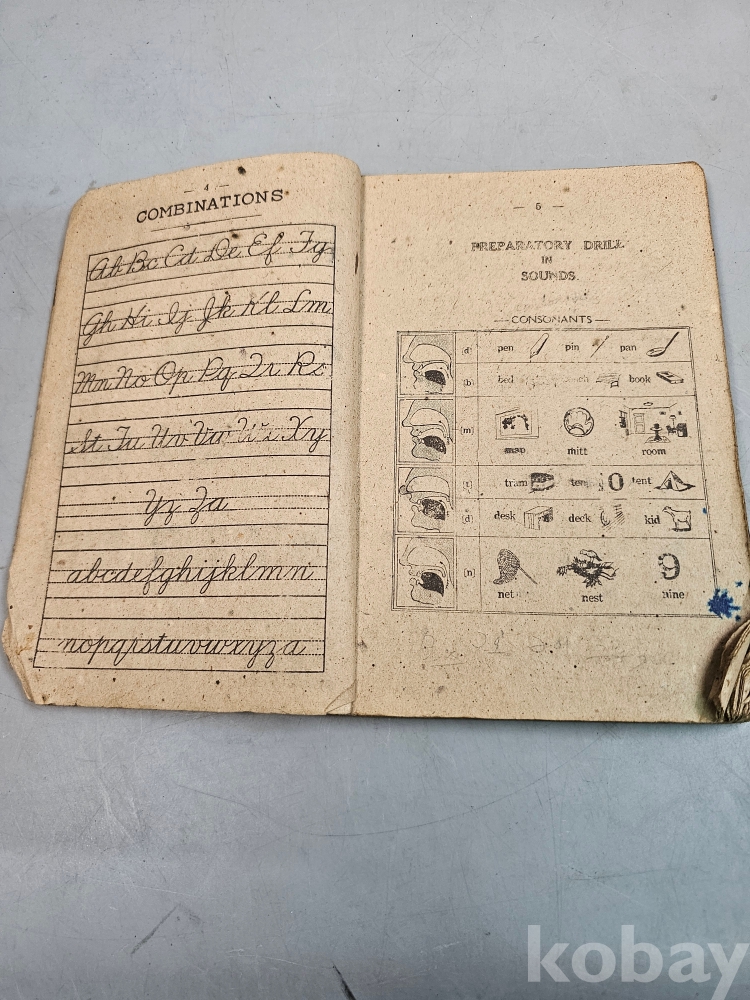 — 4 —
COMBINATIONS
Ab Bc Cd De Ef Fg
Gh Hi Ij Jk Kl Lm
Mn No Op Pq Qr Rs
St Tu Uv Vw Xy
Yz Za
abcdefghijklmn
nopqrstuvwxyza
— 5 —
PREPARATORY DRILL
IN
SOUNDS.
— CONSONANTS —
pen pin pan
[b] bed book
[m] map mitt room
[t] tram ten 10 tent
[d] desk deck kid
[n] net nest nine 9
kobay